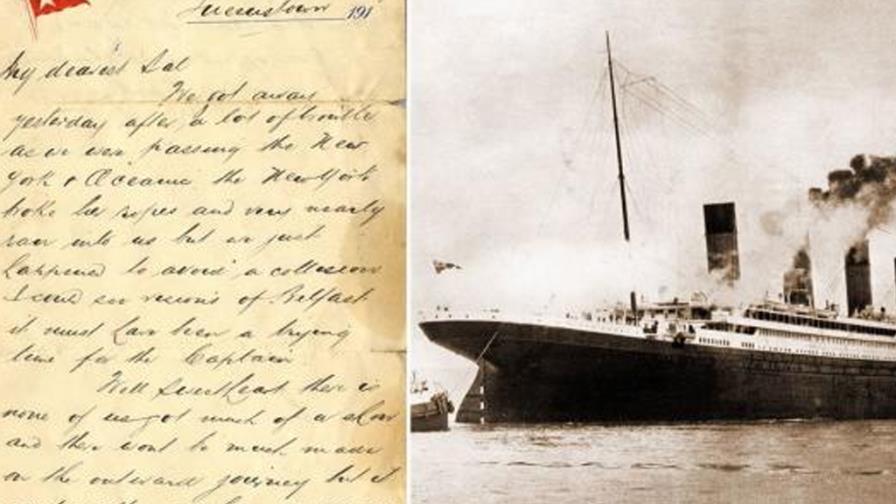 Queenstown 191
My dearest Sal
We got away
yesterday after a lot of trouble
as we were passing the New
York & Oceanic the New York
broke her ropes and very nearly
ran into us but we just
happened to avoid a collesion
I could see visions of Belfast
it must have been a trying
time for the Captain
Well Sweetheart there is
none of us got much of a show
and there wont be much made
on the outward journey but it